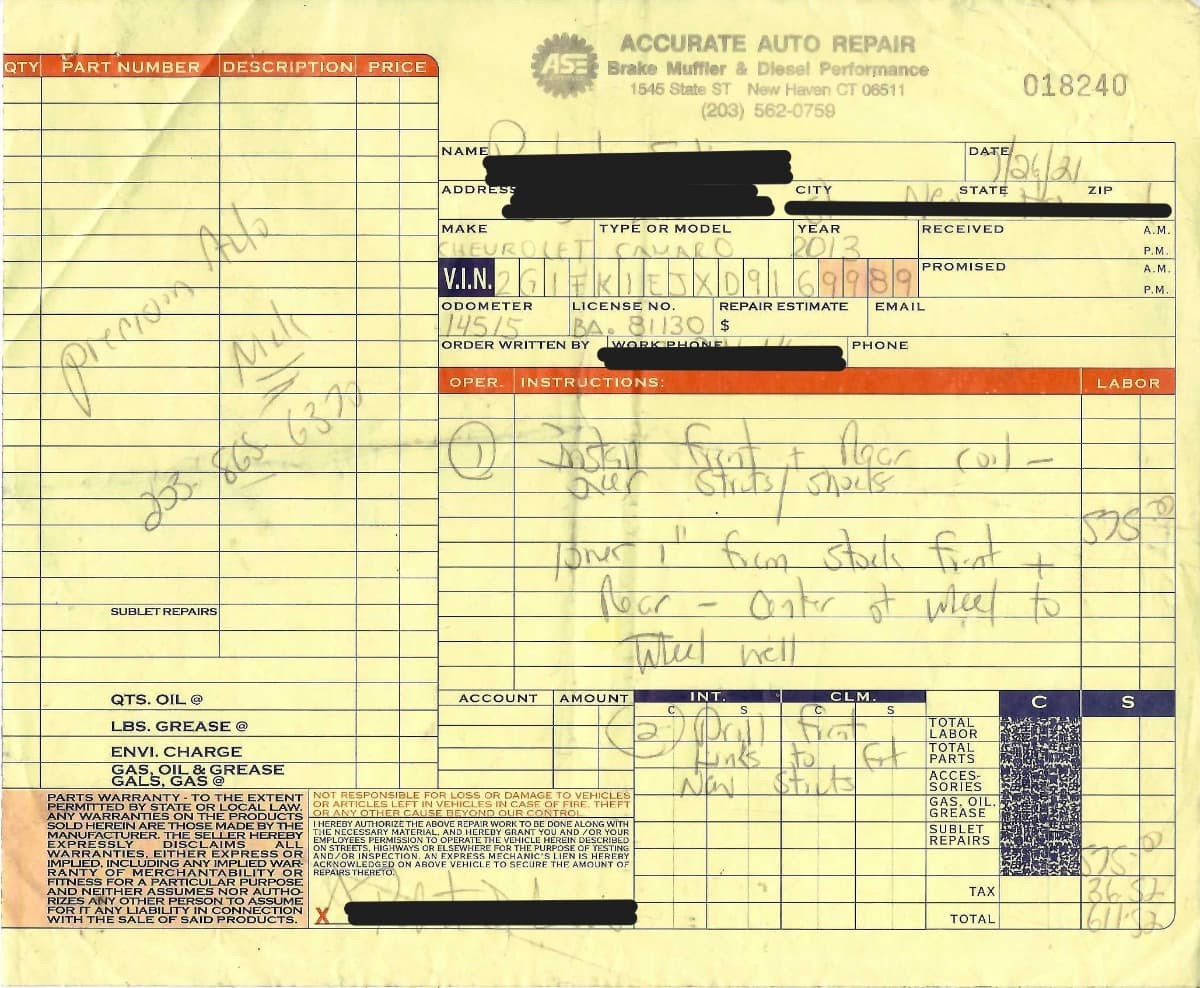 ACCURATE AUTO REPAIR
ASE
Brake Muffler & Diesel Performance
1545 State ST New Haven CT 06511
(203) 562-0759
018240
QTY PART NUMBER DESCRIPTION PRICE
NAME
DATE 1/26/21
ADDRESS CITY STATE ZIP
MAKE TYPE OR MODEL YEAR RECEIVED A.M.
CHEVROLET CAMARO 2013 P.M.
V.I.N. 2G1FK1EJXD9169989 PROMISED A.M.
P.M.
ODOMETER LICENSE NO. REPAIR ESTIMATE EMAIL
14515 BA. 81130 $
ORDER WRITTEN BY WORK PHONE PHONE
Auto
203-865-6370
SUBLET REPAIRS
QTS. OIL @
LBS. GREASE @
ENVI. CHARGE
GAS, OIL & GREASE
GALS, GAS @
OPER. INSTRUCTIONS: LABOR
1 Install front + Rear coil-
over struts/shocks
575.00
lower 1" from stock front +
Rear - center of wheel to
wheel well
ACCOUNT AMOUNT INT. CLM. C S
C S C S
2 Drill front
Links to fit
New struts
TOTAL LABOR
TOTAL PARTS
ACCES-
SORIES
GAS, OIL.
GREASE
SUBLET
REPAIRS
575.00
TAX 36.52
TOTAL 611.52
PARTS WARRANTY - TO THE EXTENT
PERMITTED BY STATE OR LOCAL LAW.
ANY WARRANTIES ON THE PRODUCTS
SOLD HEREIN ARE THOSE MADE BY THE
MANUFACTURER. THE SELLER HEREBY
EXPRESSLY DISCLAIMS ALL
WARRANTIES, EITHER EXPRESS OR
IMPLIED, INCLUDING ANY IMPLIED WAR-
RANTY OF MERCHANTABILITY OR
FITNESS FOR A PARTICULAR PURPOSE
AND NEITHER ASSUMES NOR AUTHO-
RIZES ANY OTHER PERSON TO ASSUME
FOR IT ANY LIABILITY IN CONNECTION
WITH THE SALE OF SAID PRODUCTS.
NOT RESPONSIBLE FOR LOSS OR DAMAGE TO VEHICLES
OR ARTICLES LEFT IN VEHICLES IN CASE OF FIRE, THEFT
OR ANY OTHER CAUSE BEYOND OUR CONTROL.
I HEREBY AUTHORIZE THE ABOVE REPAIR WORK TO BE DONE ALONG WITH
THE NECESSARY MATERIAL, AND HEREBY GRANT YOU AND /OR YOUR
EMPLOYEES PERMISSION TO OPERATE THE VEHICLE HEREIN DESCRIBED
ON STREETS, HIGHWAYS OR ELSEWHERE FOR THE PURPOSE OF TESTING
AND/OR INSPECTION. AN EXPRESS MECHANIC'S LIEN IS HEREBY
ACKNOWLEDGED ON ABOVE VEHICLE TO SECURE THE AMOUNT OF
REPAIRS THERETO.
X